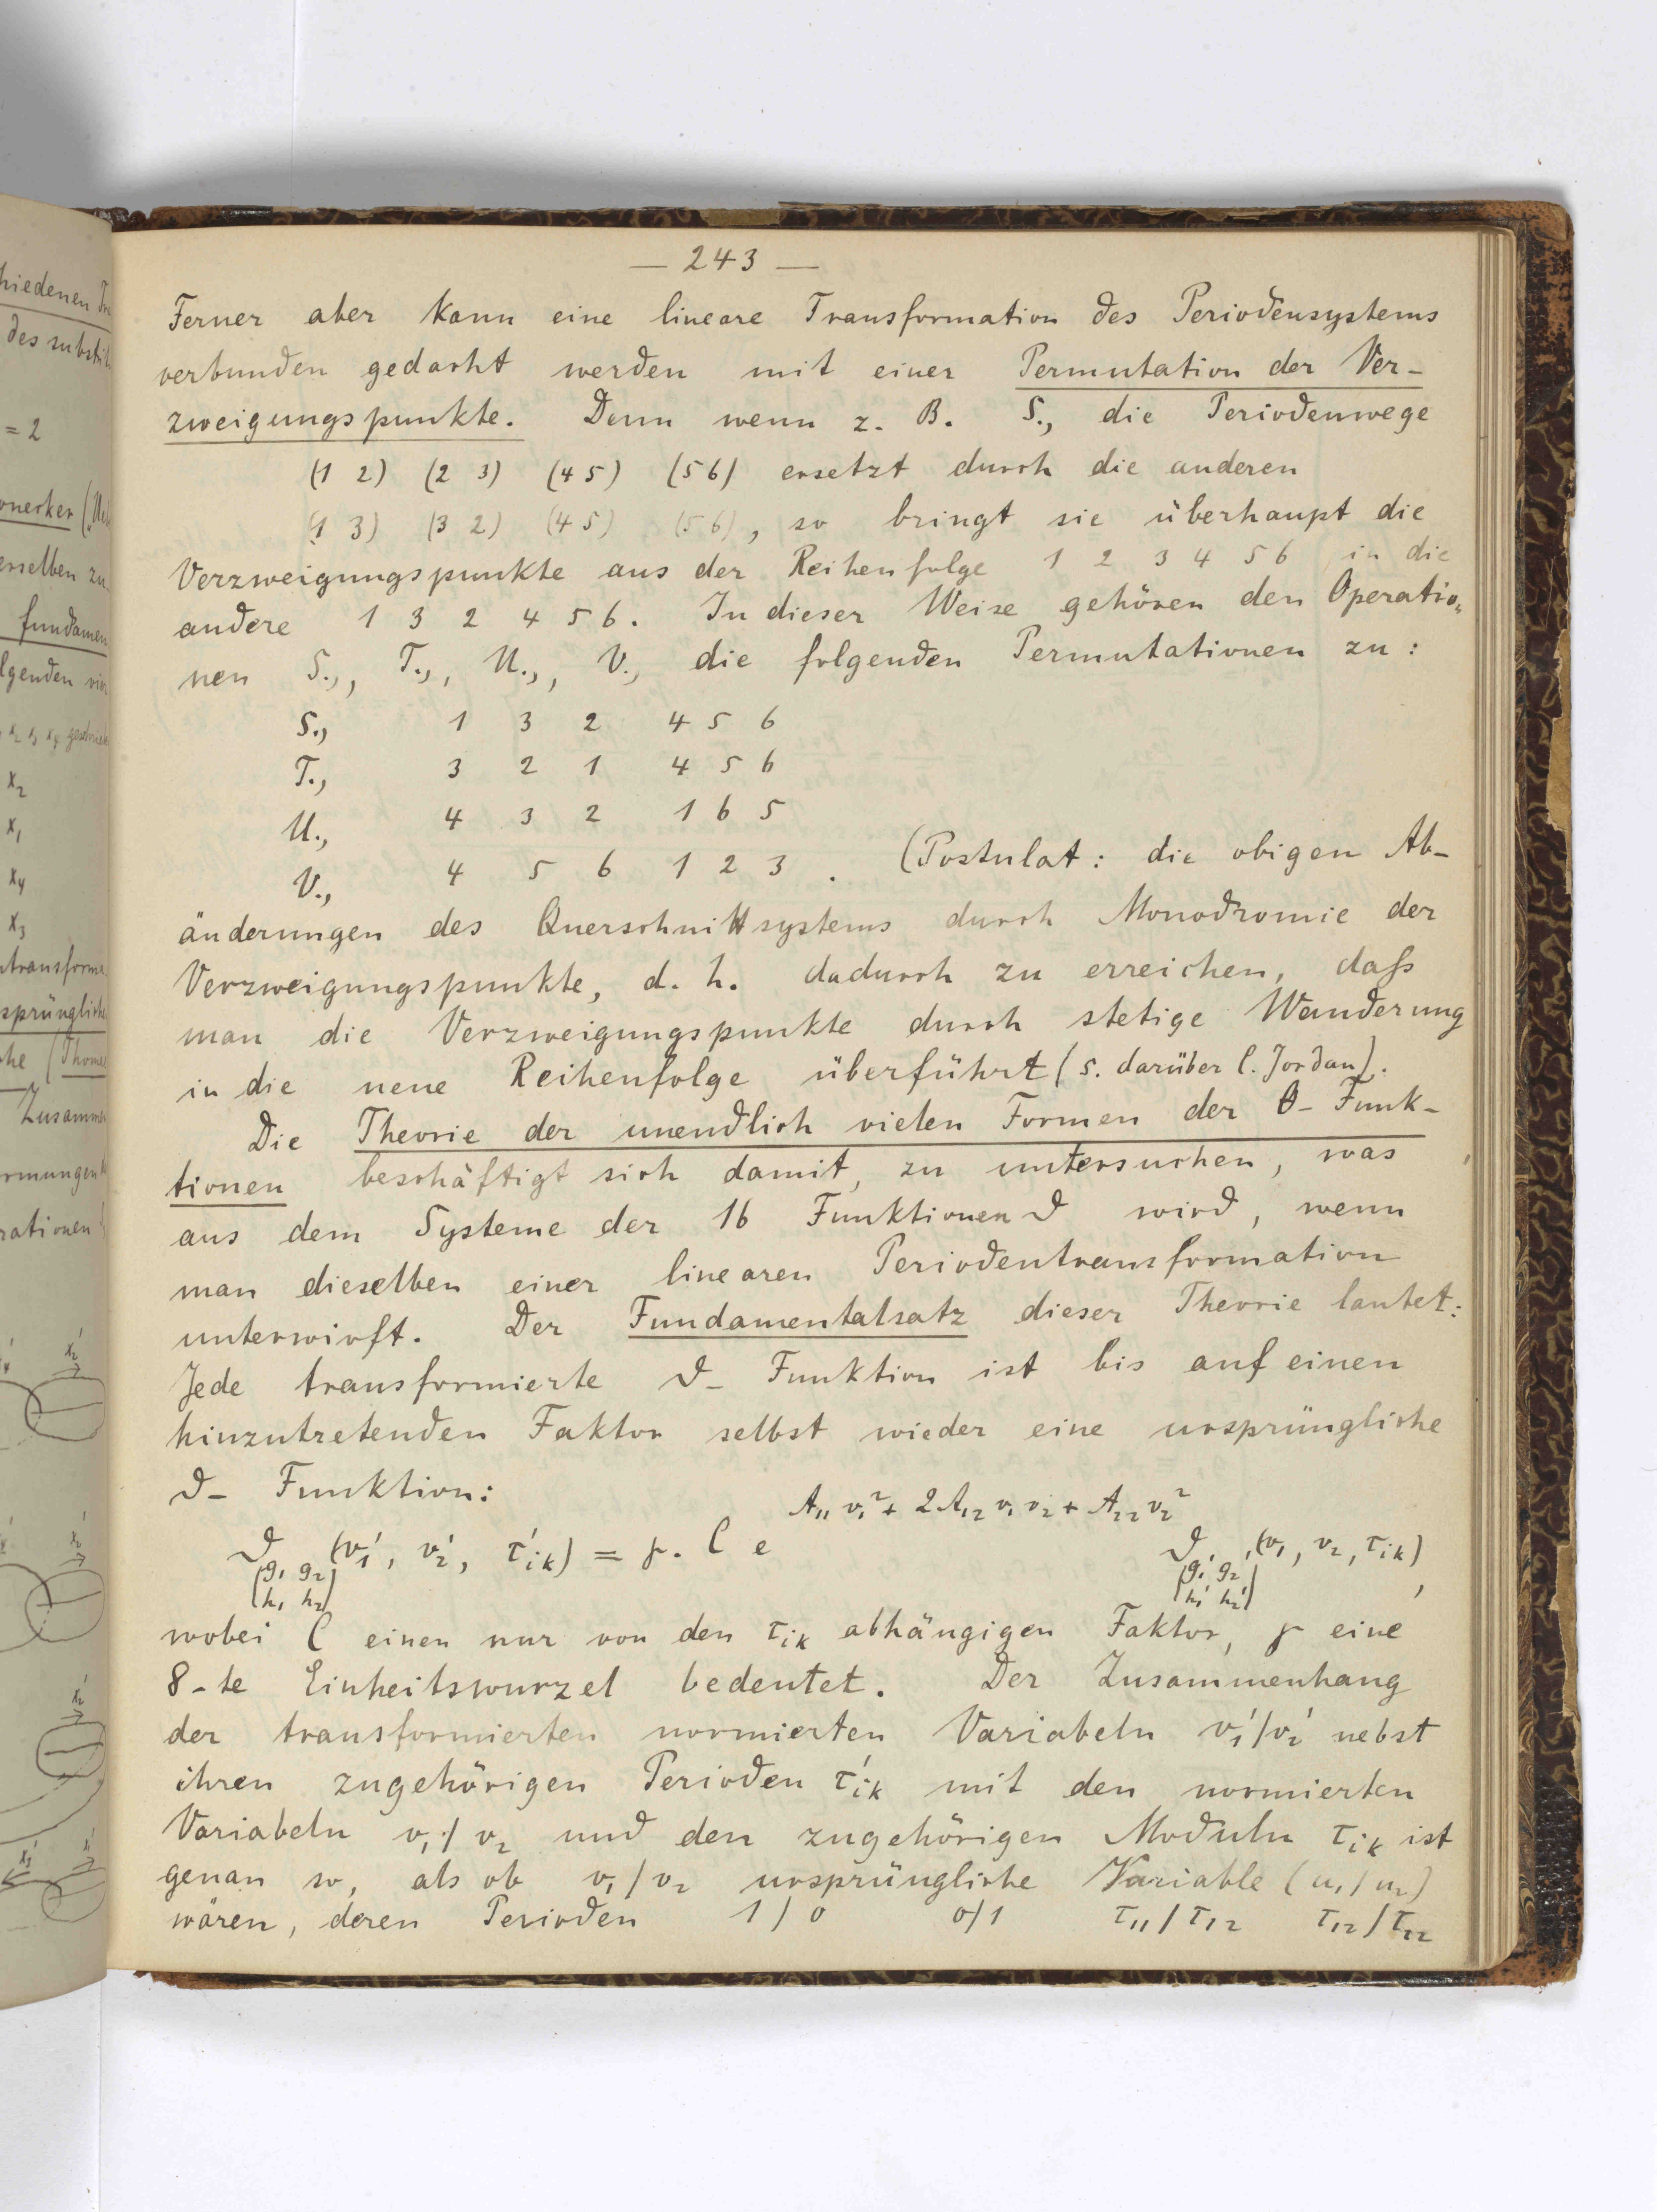 hiedenen
des substi
= 2
erselben zu
fundamen
lgenden
x₂
x₁
x₄
x₃
transform
sprünglich
Zusamm
rmungen
rationen
— 243 —
Ferner aber kann eine lineare Transformation des Periodensystems
verbunden gedacht werden mit einer Permutation der Ver-
zweigungspunkte. Denn wenn z. B. S., die Periodenwege
(1 2) (2 3) (4 5) (5 6) ersetzt durch die anderen
(1 3) (3 2) (4 5) (5 6), so bringt sie überhaupt die
Verzweigungspunkte aus der Reihenfolge 1 2 3 4 5 6 in die
andere 1 3 2 4 5 6. In dieser Weise gehören den Operatio-
nen S., T., U., V., die folgenden Permutationen zu:
S., 1 3 2 4 5 6
T., 3 2 1 4 5 6
U., 4 3 2 1 6 5
V., 4 5 6 1 2 3 . (Postulat: die obigen Ab-
änderungen des Querschnittsystems durch Monodromie der
Verzweigungspunkte, d. h. dadurch zu erreichen, daß
man die Verzweigungspunkte durch stetige Wanderung
in die neue Reihenfolge überführt (s. darüber C. Jordan).
Die Theorie der unendlich vielen Formen der θ- Funk-
tionen beschäftigt sich damit, zu untersuchen, was
aus dem Systeme der 16 Funktionen ϑ wird, wenn
man dieselben einer linearen Periodentransformation
unterwirft. Der Fundamentalsatz dieser Theorie lautet:
Jede transformierte ϑ- Funktion ist bis auf einen
hinzutretenden Faktor selbst wieder eine ursprüngliche
ϑ- Funktion:
A₁₁ v₁² + 2A₁₂ v₁ v₂ + A₂₂ v₂²
ϑ (v₁', v₂', τ'ik) = γ. C e ϑ (v₁, v₂, τik)
(g₁ g₂) (g₁' g₂')
(h₁ h₂) (h₁' h₂') ,
wobei C einen nur von den τik abhängigen Faktor, γ eine
8-te Einheitswurzel bedeutet. Der Zusammenhang
der transformierten normierten Variabeln v₁'/v₂' nebst
ihren zugehörigen Perioden τ'ik mit den normierten
Variabeln v₁/v₂ und den zugehörigen Moduln τik ist
genau so, als ob v₁/v₂ ursprüngliche Variable (u₁/u₂)
wären, deren Perioden 1/0 0/1 τ₁₁/τ₁₂ τ₁₂/τ₂₂